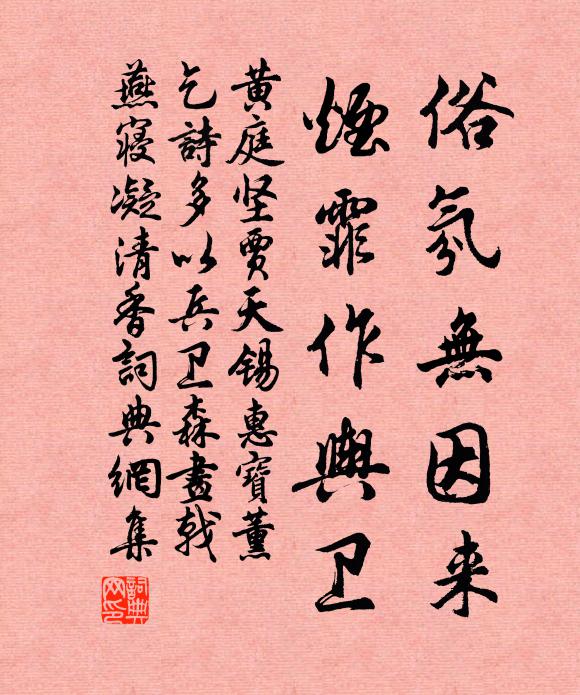 俗氛無因来
煙霏作輿卫
黄庭坚賈天锡惠寶薰
乞詩多以兵卫森畫戟
燕寝凝清香詞典網集
詞典网印